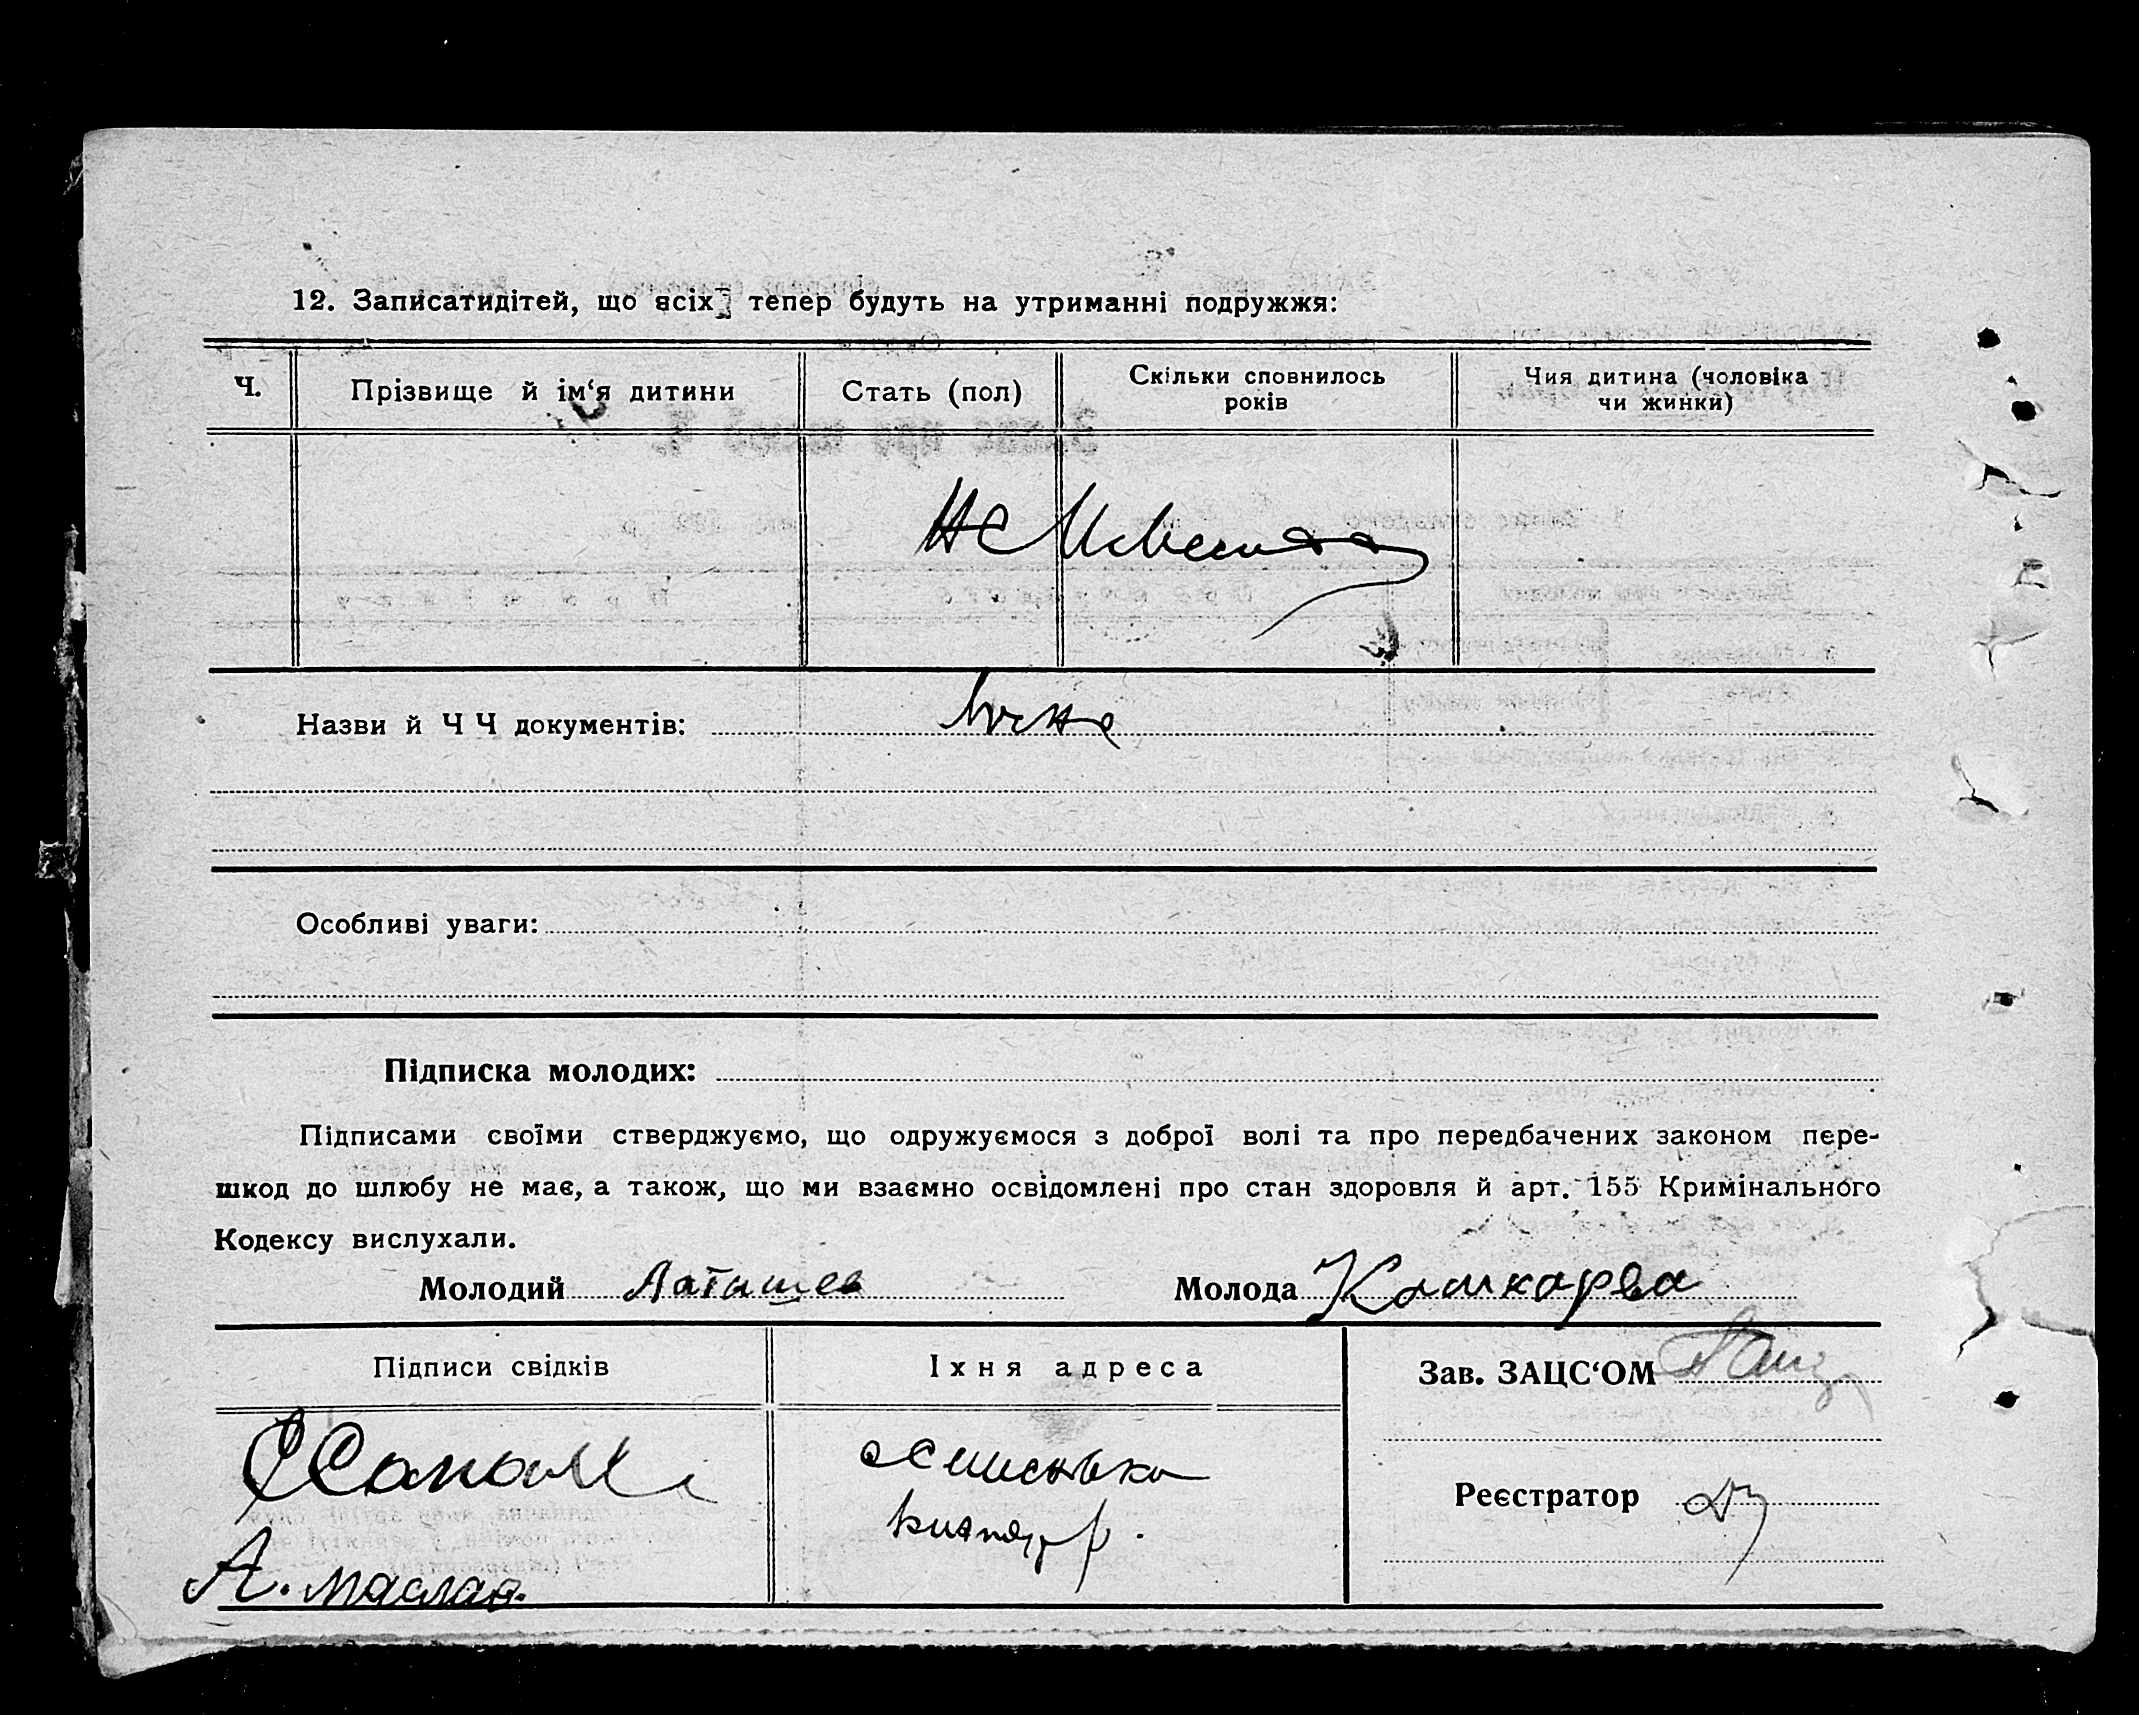 12. Записатидітей, що всіх тепер будуть на утриманні подружжя:
Ч.
Прізвище й ім‘я дитини
Стать (пол)
Скільки сповнилось
років
Чия дитина (чоловіка
чи жинки)
Назви й Ч Ч документів:
Особливі уваги:
Підписка молодих:
Підписами своїми стверджуємо, що одружуємося з доброї волі та про передбачених законом пере-
шкод до шлюбу не має, а також, що ми взаємно освідомлені про стан здоровля й арт. 155 Кримінального
Кодексу вислухали.
Молодий Латышев
Молода Кашкарева
Підписи свідків
Їхня адреса
Зав. ЗАЦС‘ОМ
Реєстратор
А.